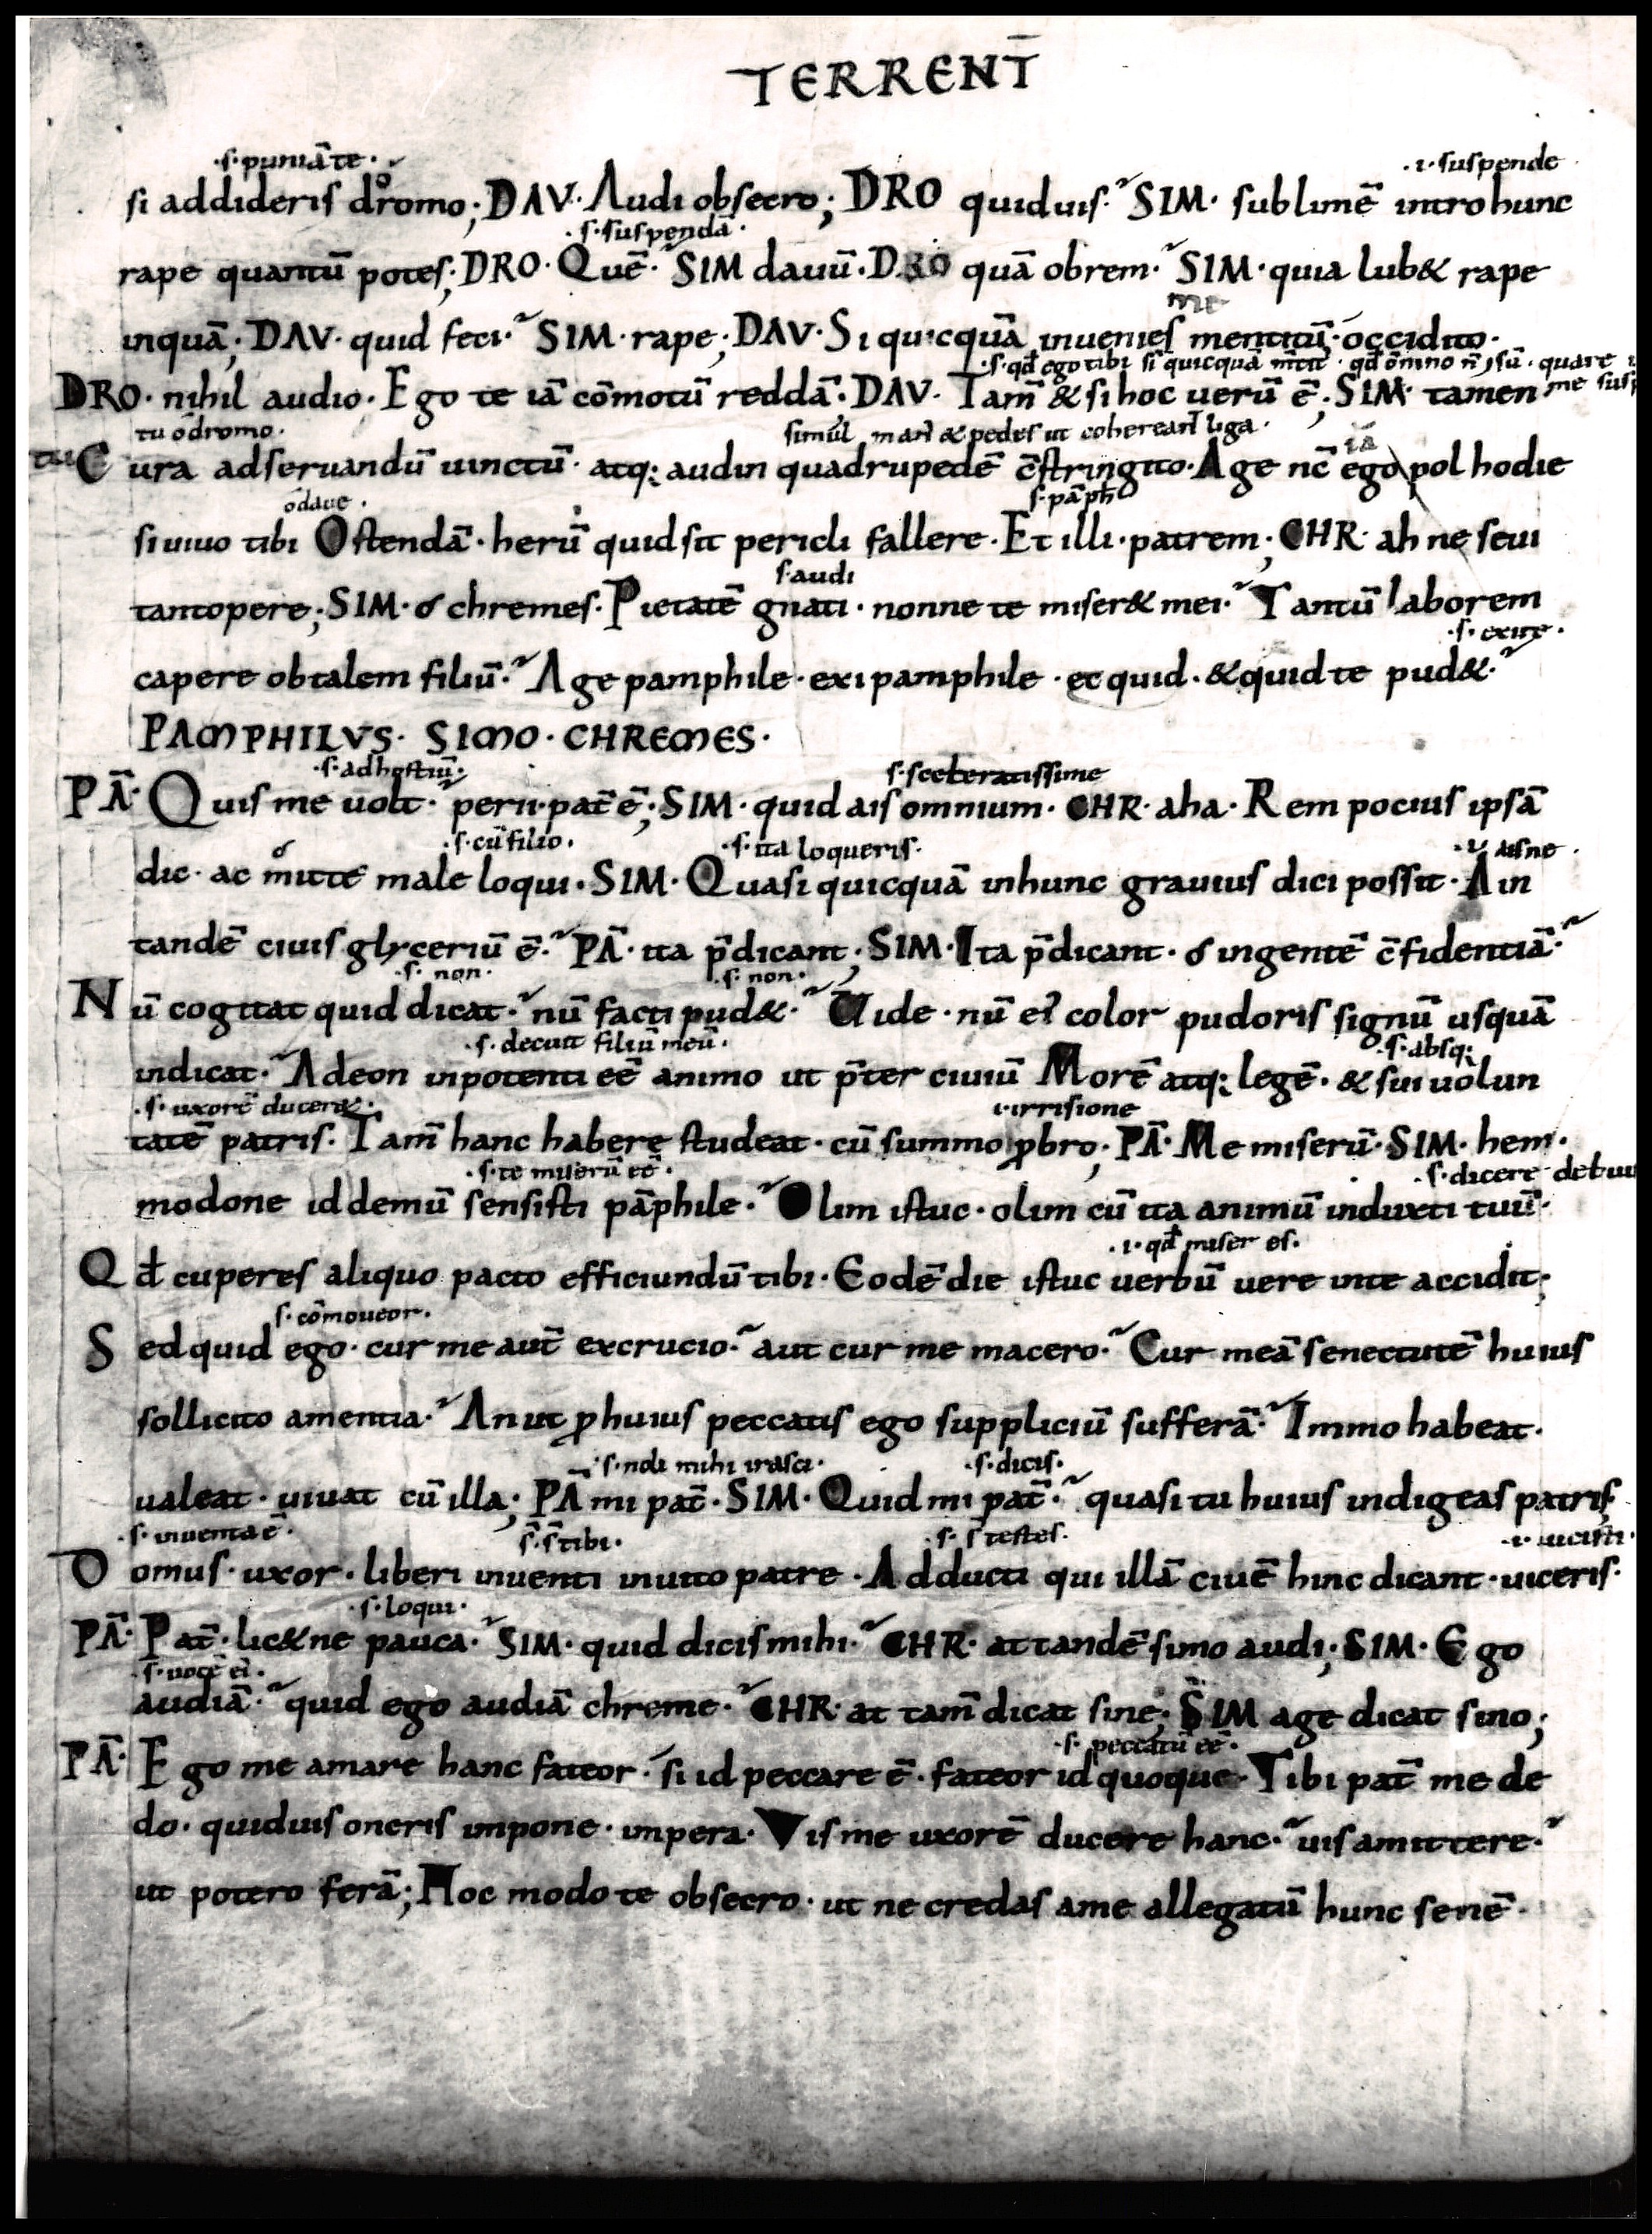 TERREN̄T
·s· puniā te·
·ı· suspende
si addideris dromo; DAV· Audi obsecro; DRO quiduis· SIM· sublimē intro hunc
·s· suspendā·
rape quantū potes; DRO· Quē· SIM dauū· DRO quā obrem· SIM· quia lub& rape
me
inquā; DAV· quid feci· SIM· rape; DAV· Si quicquā inuenies mentitū· occidito·
·s· qđ ego tibi si quicquā · qđ quare
DRO· nihil audio· Ego te iā cōmotū reddā· DAV· Tam̄ & si hoc uerū ē; SIM· tamen me
tu ō dromo·
simul man̄ & pedes ut cohereant liga·
iā
tu Cura adseruandū uinctū· atq; audin quadrupedē c̄stringito· Age nc̄ ego pol hodie
ō daue·
s· pāph
si uiuo tibi Ostendā· herū quid sit pericli fallere· Et illi· patrem; CHR· ah ne seui
s· audi
tantopere; SIM· ó chremes· Pietatē gnati· nonne te miser& mei· Tantū laborem
·s· exire·
capere ob talem filiū· Age pamphile· exi pamphile· ecquid· &quid te pud&·
PAMPHILVS· SIMO· CHREMES·
·s· ad hostiū·
s· sceleratissime
PĀ· Quis me uolt· perii· pat̄ ē; SIM· quid ais omnium· CHR· aha· Rem pocius ipsā
ó
·s· cū filio·
·s· ita loqueris·
·ı· aisne·
dic· ac mitte male loqui· SIM· Quasi quicquā in hunc grauius dici possit· Ain
tandē ciuis glyceriū ē· PĀ· ita p̄dicant; SIM· Ita p̄dicant· ó ingentē c̄fidentiā·
·s· non·
·s· non·
Nū cogitat quid dicat· nū facti pud&· Uide· nū ei color pudoris signū usquā
·s· decuit filiū meū·
·s· absq;
indicat· Adeon inpotenti eē animo ut p̄ter ciuiū Morē atq; legē· & sui uolun
·s· uxorē ducer&·
ı· irrisione
tatē patris· Tam̄ hanc habere studeat· cū summo ꝓbro; PĀ· Me miserū· SIM· hem·
·s· te miserū eē·
·s· dicere debuit
modone id demū sensisti pāphile· Olim istuc· olim cū ita animū induxti tuū·
·ı· qđ miser es·
Qđ cuperes aliquo pacto efficiundū tibi· Eodē die istuc uerbū uere inte accidit;
s· cōmoueor·
Sed quid ego· cur me aut̄ excrucio· aut cur me macero· Cur meā senectutē huius
sollicito amentia· An ut ꝓ huius peccatis ego suppliciū sufferā· Immo habeat·
·s· noli mihi irasci·
·s· dicis·
ualeat· uiuat cū illa; PĀ mi pat̄· SIM· Quid mi pat̄· quasi tu huius indigeas patris
·s· inuenta ē·
s̄· s̄ tibi·
·s· s̄ testes·
·ı· uicisti·
Domus· uxor· liberi inuenti inuito patre· Adducti qui illā ciuē hinc dicant· uiceris·
·s· loqui·
PĀ· Pat̄· lic&ne pauca· SIM· quid dicis mihi· CHR· at tandē simo audi; SIM· Ego
·s· uocē ei·
audiā· quid ego audiā chreme· CHR· at tam̄ dicat sine; SIM age dicat sino;
·s· peccatū eē·
PĀ· Ego me amare hanc fateor· si id peccare ē· fateor id quoque· Tibi pat̄ me de
do· quiduis oneris impone· impera· Vis me uxorē ducere hanc· uis amittere·
ut potero ferā; Hoc modo te obsecro· ut ne credas ame allegatū hunc senē·